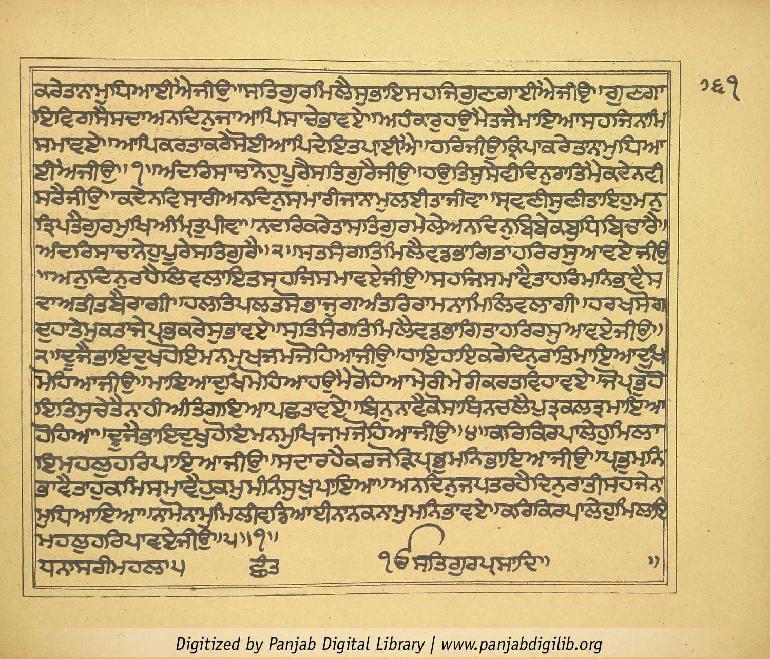 ਕਰੇਤਨਾਮੁਧਿਆਈਐਜੀਉ॥ਸਤਿਗੁਰਮਿਲੈਸੁਭਾਇਸਹਜਿਗੁਣਗਾਈਐਜੀਉ॥ਗੁਣਗਾ
ਇਵਿਗਸੈਸਦਾਅਨਦਿਨੁਜਾਆਪਿਸਾਚੇਭਾਵਏ॥ਅਹੰਕਾਰੁਹਉਮੈਤਜੈਮਾਇਆਸਹਜਿਨਾਮਿ
ਸਮਾਵਏ॥ਆਪਿਕਰਤਾਕਰੇਸੋਈਆਪਿਦੇਇਤਪਾਈਐ॥ਹਰਿਜੀਉਕ੍ਰਿਪਾਕਰੇਤਨਾਮੁਧਿਆ
ਈਐਜੀਉ॥੧॥ਅੰਦਰਿਸਾਚਾਨੇਹੁਪੂਰੈਸਤਿਗੁਰੈਜੀਉ॥ਹਉਤਿਸੁਸੇਵੀਦਿਨੁਰਾਤਿਮੈਕਦੇਨਵੀ
ਸਰੈਜੀਉ॥ਕਦੇਨਵਿਸਾਰੀਅਨਦਿਨੁਸਮਾਰੀਜਾਨਾਮੁਲਈਤਾਜੀਵਾ॥ਸ੍ਰਵਣੀਸੁਣੀਤਾਇਹੁਮਨੁ
ਤ੍ਰਿਪਤੈਗੁਰਮੁਖਿਅੰਮ੍ਰਿਤੁਪੀਵਾ॥ਨਦਰਿਕਰੇਤਾਸਤਿਗੁਰੁਮੇਲੇਅਨਦਿਨੁਬਿਬੇਕਬੁਧਿਬਿਚਰੈ॥
ਅੰਦਰਿਸਾਚਾਨੇਹੁਪੂਰੇਸਤਿਗੁਰੈ॥੨॥ਸਤਸੰਗਤਿਮਿਲੈਵਡਭਾਗਿਤਾਹਰਿਰਸੁਆਵਏਜੀਉ
॥ਅਨਦਿਨੁਰਹੈਲਿਵਲਾਇਤਸਹਜਿਸਮਾਵਏਜੀਉ॥ਸਹਜਿਸਮਾਵੈਤਾਹਰਿਮਨਿਭਾਵੈਸ
ਦਾਅਤੀਤੁਬੈਰਾਗੀ॥ਹਲਤਿਪਲਤਿਸੋਭਾਜਗਅੰਤਰਿਰਾਮਨਾਮਿਲਿਵਲਾਗੀ॥ਹਰਖਸੋਗ
ਦੁਹਾਤੇਮੁਕਤਾਜੋਪ੍ਰਭੁਕਰੇਸੁਭਾਵਏ॥ਸਤਸੰਗਤਿਮਿਲੈਵਡਭਾਗਿਤਾਹਰਿਰਸੁਆਵਏਜੀਉ॥
੩॥ਦੂਜੈਭਾਇਦੁਖੁਹੋਇਮਨਮੁਖਜਮਜੋਹਿਆਜੀਉ॥ਹਾਇਹਾਇਕਰੇਦਿਨੁਰਾਤਿਮਾਇਆਦੁਖਿ
ਮੋਹਿਆਜੀਉ॥ਮਾਇਆਦੁਖਿਮੋਹਿਆਹਉਮੈਰੋਹਿਆਮੇਰੀਮੇਰੀਕਰਤਾਵਿਹਾਵਏ॥ਜੋਪ੍ਰਭੁਦੇ
ਇਤਿਸੁਚੇਤੈਨਾਹੀਅੰਤਿਗਇਆਪਛੁਤਾਵਏ॥ਬਿਨੁਨਾਵੈਕੋਸਾਥਿਨਚਲੈਪੁਤ੍ਰਕਲਤ੍ਰਮਾਇਆ
ਧੋਹਿਆ॥ਦੂਜੈਭਾਇਦੁਖੁਹੋਇਮਨਮੁਖਿਜਮਜੋਹਿਆਜੀਉ॥੪॥ਕਰਿਕਿਰਪਾਲੇਹੁਮਿਲਾ
ਇਮਹਲੁਹਰਿਪਾਇਆਜੀਉ॥ਸਦਾਰਹੈਕਰਜੋੜਿਪ੍ਰਭੁਮਨਿਭਾਇਆਜੀਉ॥ਪ੍ਰਭੁਮਨਿ
ਭਾਵੈਤਾਹੁਕਮਿਸਮਾਵੈਹੁਕਮੁਮੰਨਿਸੁਖੁਪਾਇਆ॥ਅਨਦਿਨੁਜਪਤਰਹੈਦਿਨੁਰਾਤੀਸਹਜੇਨਾ
ਮੁਧਿਆਇਆ॥ਨਾਮੋਨਾਮੁਮਿਲੀਵਡਿਆਈਨਾਨਕਨਾਮੁਮਨਿਭਾਵਏ॥ਕਰਿਕਿਰਪਾਲੇਹੁਮਿਲਾਇ
ਮਹਲੁਹਰਿਪਾਵਏਜੀਉ॥੫॥੧॥
ਧਨਾਸਰੀਮਹਲਾ੫ ਛੰਤ ੴਸਤਿਗੁਰਪ੍ਰਸਾਦਿ॥ ॥
Digitized by Panjab Digital Library | www.panjabdigilib.org